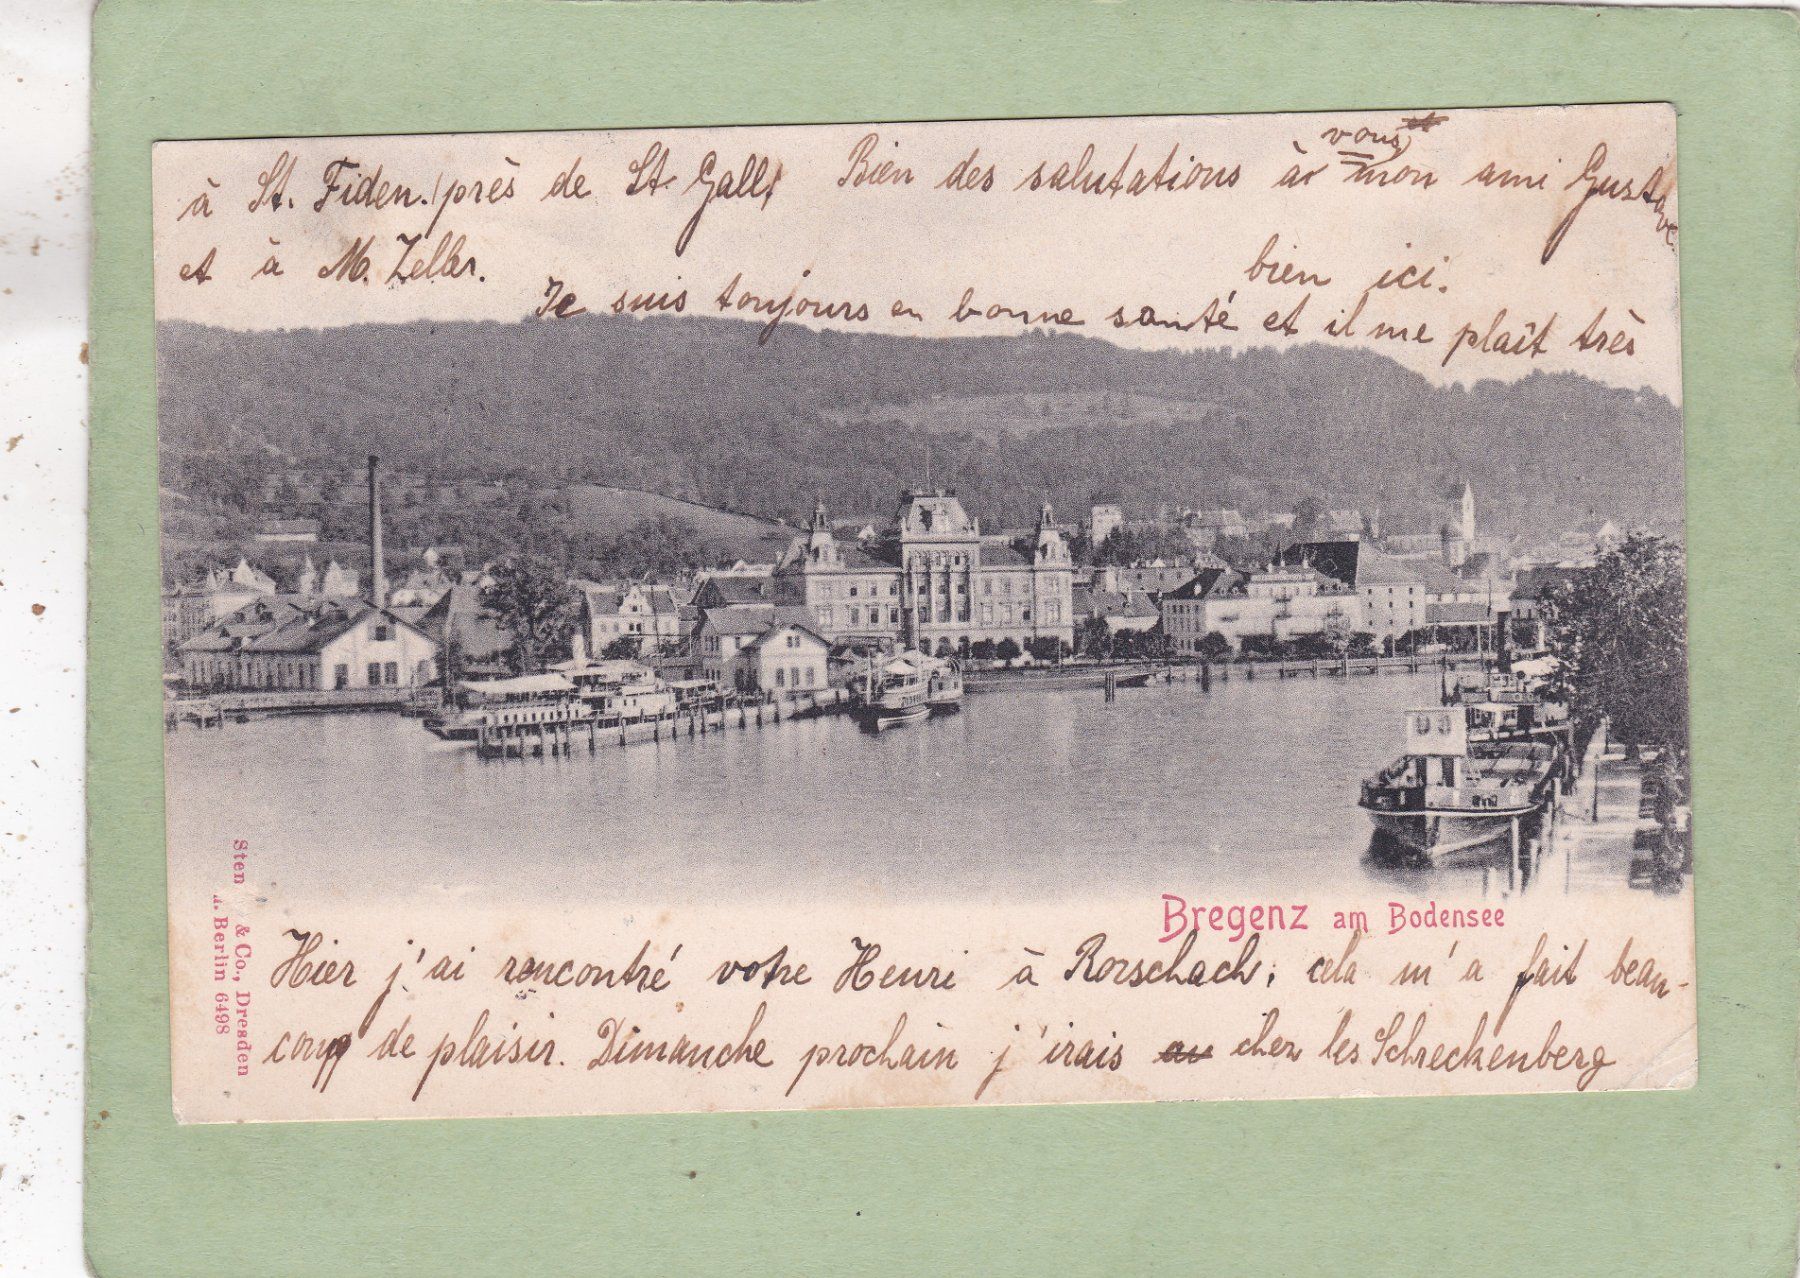 à St. Fiden. (près de St. Gall) Bien des salutations à vous, mon ami Gustave
et à M. Zeller.
Je suis toujours en bonne santé et il me plaît très
bien ici.
Bregenz am Bodensee
Hier j'ai rencontré votre Henri à Rorschach; cela m'a fait beau-
coup de plaisir. Dimanche prochain j'irais chez les Schreckenberg
Sten & Co., Dresden
u. Berlin 6498